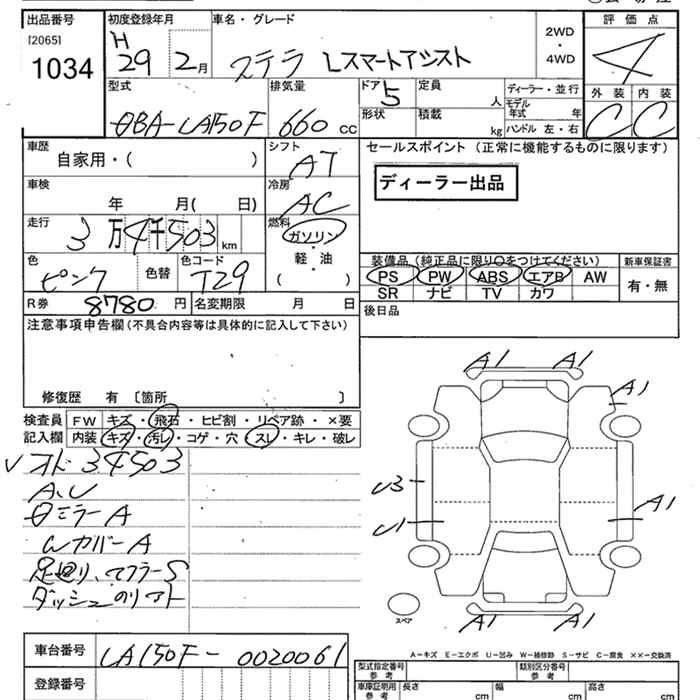 出品番号 初度登録年月 車名・グレード 評価点
[2065] 1034
H 29 2月 ステラ Lスマートアシスト 2WD・4WD 4
外装 内装
C C
型式 排気量 ドア 定員 ディーラー・並行
DBA-LA150F 660 CC 5 人
形状 積載 kg モデル年式 年
ハンドル 左・右
車歴 シフト セールスポイント (正常に機能するものに限ります)
自家用・( ) AT ディーラー出品
車検 冷房
年 月( 日) AC
走行 燃料
3万4千503 km ガソリン
軽・油
( )
色 色替 色コード
ピンク T29
装備品 (純正品に限り○をつけてください) 新車保証書
PS PW ABS エアB AW 有・無
SR ナビ TV カワ
R券 8780 円 名変期限 月 日
後日品
注意事項申告欄 (不具合内容等は具体的に記入して下さい)
修復歴 有 〔箇所 〕
検査員 FW キズ・飛石・ヒビ割・リペア跡・×要
記入欄 内装 キズ・汚レ・コゲ・穴・スレ・キレ・破レ
オド 34503
A、U
ミラーA
WカバーA
足廻り、マフラーS
A1 A1
A1
U3
U1 A1
A1 A1
スペア
A-キズ E-エクボ U-凹み W-補修跡 S-サビ C-腐食 ××-交換済
車台番号 LA150F-0020061
登録番号
型式指定番号 参考 類別区分番号 参考
車庫証明用 参考 長さ cm 幅 cm 高さ cm